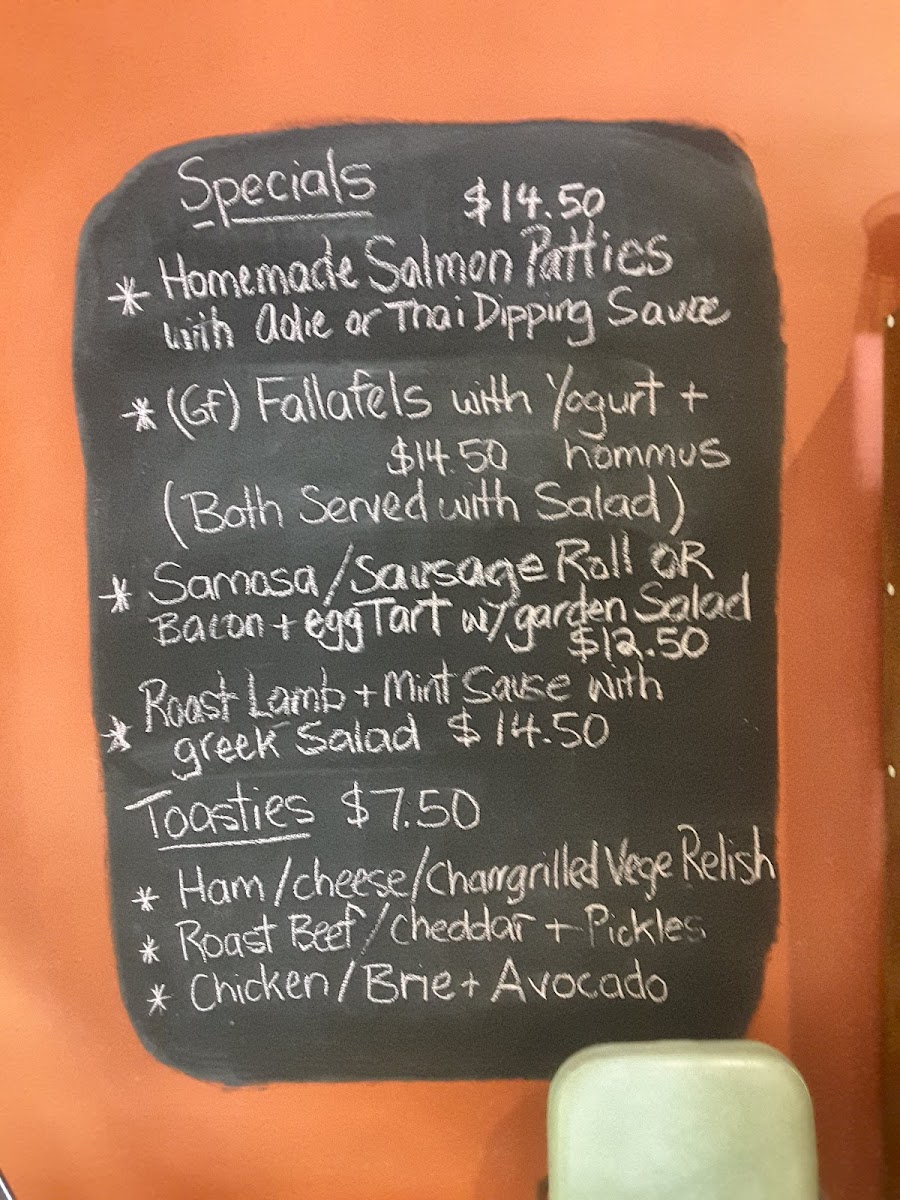 Specials
$14.50
* Homemade Salmon Patties
with aolie or Thai Dipping Sauce
* (GF) Fallafels with Yogurt +
$14.50 hommus
(Both Served with Salad)
* Samosa/Sausage Roll OR
Bacon + egg Tart w/ garden Salad
$12.50
Roast Lamb + Mint Sause with
* greek Salad $14.50
Toasties $7.50
* Ham/cheese/Charrgrilled Vege Relish
* Roast Beef/cheddar + Pickles
* Chicken/Brie + Avocado